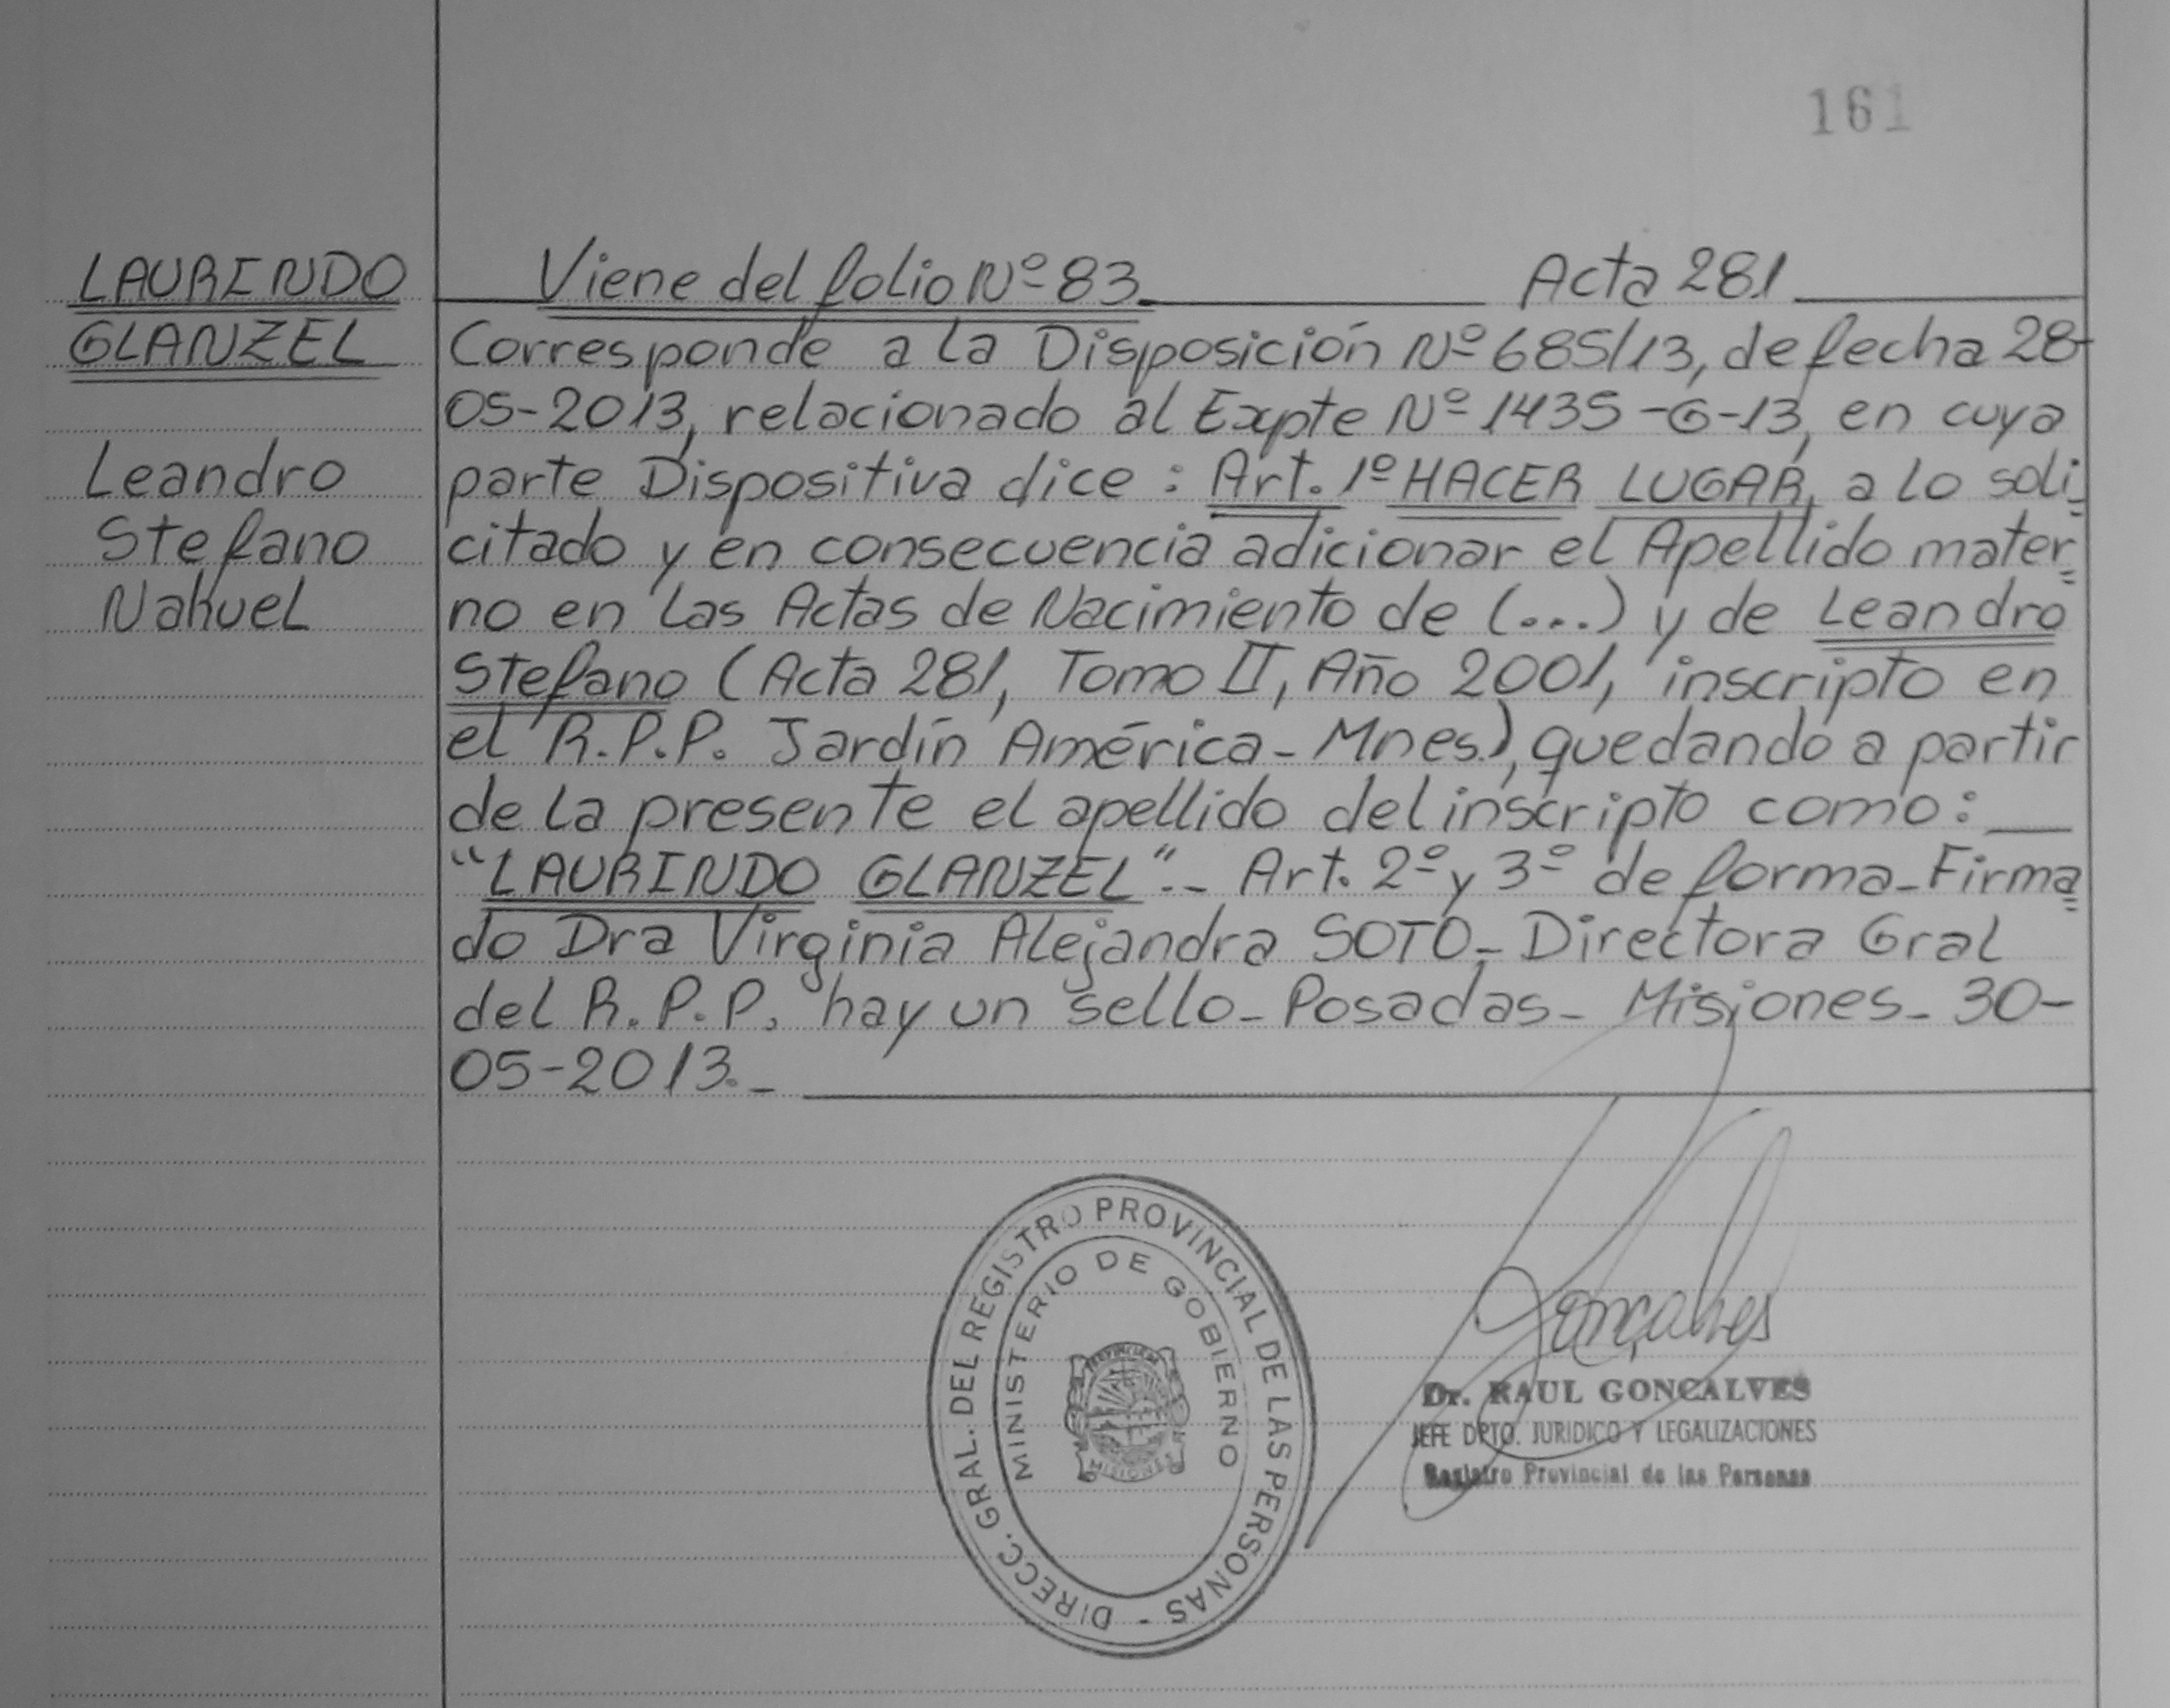 161
LAURINDO
GLANZEL
Leandro
Stefano
Nahuel
Viene del folio Nº 83 Acta 281
Corresponde a la Disposición Nº 685/13, de fecha 28-
05-2013, relacionado al Expte Nº 1435-G-13, en cuya
parte Dispositiva dice: Art. 1º HACER LUGAR, a lo soli=
citado y en consecuencia adicionar el Apellido mater=
no en las Actas de Nacimiento de (...) y de Leandro
Stefano (Acta 281, Tomo II, Año 2001, inscripto en
el R.P.P. Jardín América - Mnes.), quedando a partir
de la presente el apellido del inscripto como:
"LAURINDO GLANZEL".- Art. 2º y 3º de forma - Firma=
do Dra Virginia Alejandra SOTO - Directora Gral
del R.P.P. hay un sello - Posadas - Misiones - 30-
05-2013.-
DIRECC. GRAL. DEL REGISTRO PROVINCIAL DE LAS PERSONAS -
MINISTERIO DE GOBIERNO
MISIONES
Gonçalves
Dr. RAUL GONCALVES
JEFE DPTO. JURIDICO Y LEGALIZACIONES
Registro Provincial de las Personas